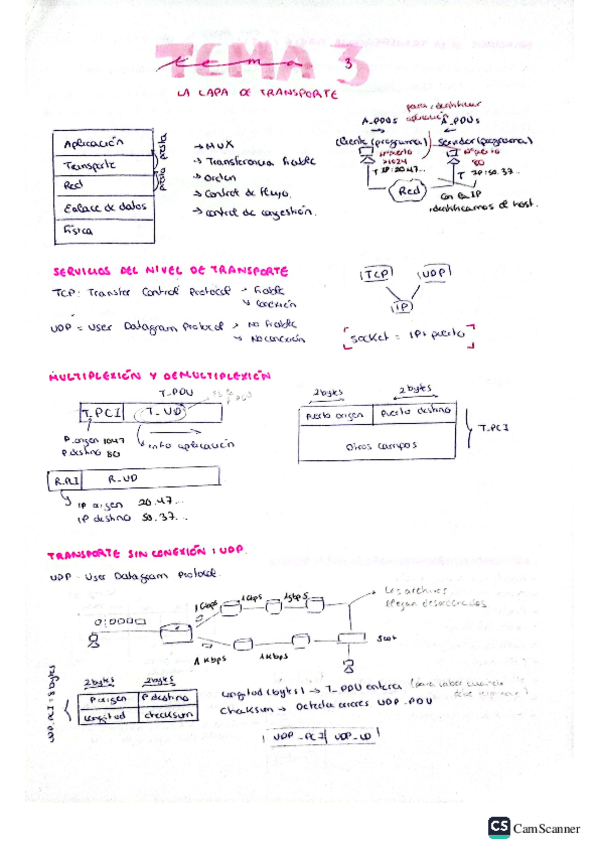 TEMA 3
tema 3
LA CAPA DE TRANSPORTE
Aplicación
Transporte
Red
Enlace de datos
Física
→ MUX
→ Transferencia fiable
→ Orden
→ Control de flujo.
→ control de congestión.
para identificar
aplicación
A_PDUs
A_PDUs
Cliente (programa)
Servidor (programa)
nº puerto
>1024
nº puerto
80
T IP: 20.47...
T IP: 50.37...
Red
con la IP
identificamos el host.
SERVICIOS DEL NIVEL DE TRANSPORTE
TCP: Transfer Control Protocol → Fiable
↘ Conexión
UDP = User Datagram Protocol → No fiable
↘ No conexión
TCP
UDP
IP
socket = IP + puerto
MULTIPLEXIÓN Y DEMULTIPLEXIÓN
T_PDU
T_PCI
T_UD
P.origen 1047
P destino 80
info aplicación
R.PCI
R_UD
IP origen 20.47...
IP destino 50.37...
2 bytes
2 bytes
puerto origen
puerto destino
Otros campos
T_PCI
TRANSPORTE SIN CONEXIÓN: UDP
UDP - User Datagram Protocol.
1 Gbps
1 Gbps
1 Kbps
1 Kbps
Los archivos
llegan desordenados
UDP_PCI = 8 bytes
2 bytes
2 bytes
P origen
P destino
Longitud
checksum
Longitud (bytes) → T_PDU entera (para saber cuando
Checksum → Detectar errores UDP_PDU
UDP_PCI
UDP_UD
CS CamScanner